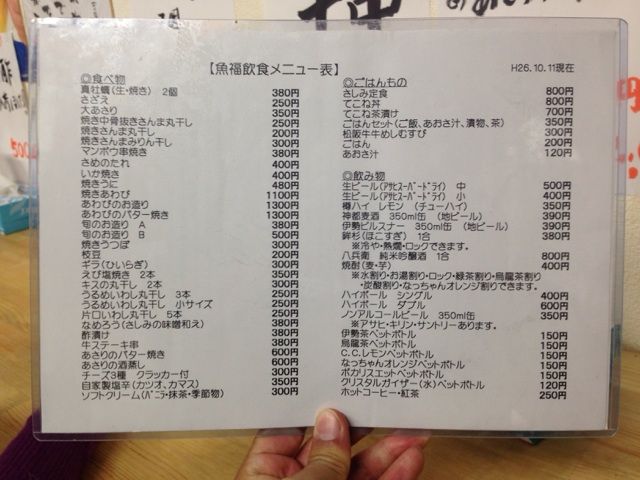 【魚福飲食メニュー表】
H26.10.11現在
◎食べ物
真牡蠣(生・焼き) 2個 380円
さざえ 250円
大あさり 350円
焼き中骨抜きさんま丸干し 250円
焼きさんま丸干し 200円
焼きさんまみりん干し 300円
マンボウ串焼き 380円
さめのたれ 400円
いか焼き 400円
焼きうに 480円
焼きあわび 1100円
あわびのお造り 1300円
あわびのバター焼き 1300円
旬のお造り A 380円
旬のお造り B 500円
焼きうつぼ 300円
枝豆 200円
ギラ(ひいらぎ) 300円
えび塩焼き 2本 350円
キスの丸干し 2本 300円
うるめいわし丸干し 3本 250円
うるめいわし丸干し 小サイズ 250円
片口いわし丸干し 5本 250円
なめろう(さしみの味噌和え) 380円
酢漬け 380円
牛ステーキ串 380円
あさりのバター焼き 600円
あさりの酒蒸し 600円
チーズ3種 クラッカー付 300円
自家製塩辛(カツオ、カマス) 350円
ソフトクリーム(バニラ・抹茶・季節物) 300円
◎ごはんもの
さしみ定食 800円
てこね丼 800円
てこね茶漬け 700円
ごはんセット(ご飯、あおさ汁、漬物、茶) 350円
松阪牛牛めしむすび 300円
ごはん 200円
あおさ汁 120円
◎飲み物
生ビール(アサヒスーパードライ) 中 500円
生ビール(アサヒスーパードライ) 小 400円
樽ハイ レモン (チューハイ) 350円
神都麦酒 350ml缶 (地ビール) 390円
伊勢ピルスナー 350ml缶 (地ビール) 390円
鉾杉(ほこすぎ) 1合 380円
※冷や・熱燗・ロックできます。
八兵衛 純米吟醸酒 1合 800円
焼酎(麦・芋) 400円
※水割り・お湯割り・ロック・緑茶割り・烏龍茶割り
・炭酸割り・なっちゃんオレンジ割りできます。
ハイボール シングル 400円
ハイボール ダブル 600円
ノンアルコールビール 350ml缶 350円
※アサヒ・キリン・サントリーあります。
伊勢茶ペットボトル 150円
烏龍茶ペットボトル 150円
C.C.レモンペットボトル 150円
なっちゃんオレンジペットボトル 150円
ポカリスエットペットボトル 150円
クリスタルガイザー(水)ペットボトル 120円
ホットコーヒー・紅茶 250円